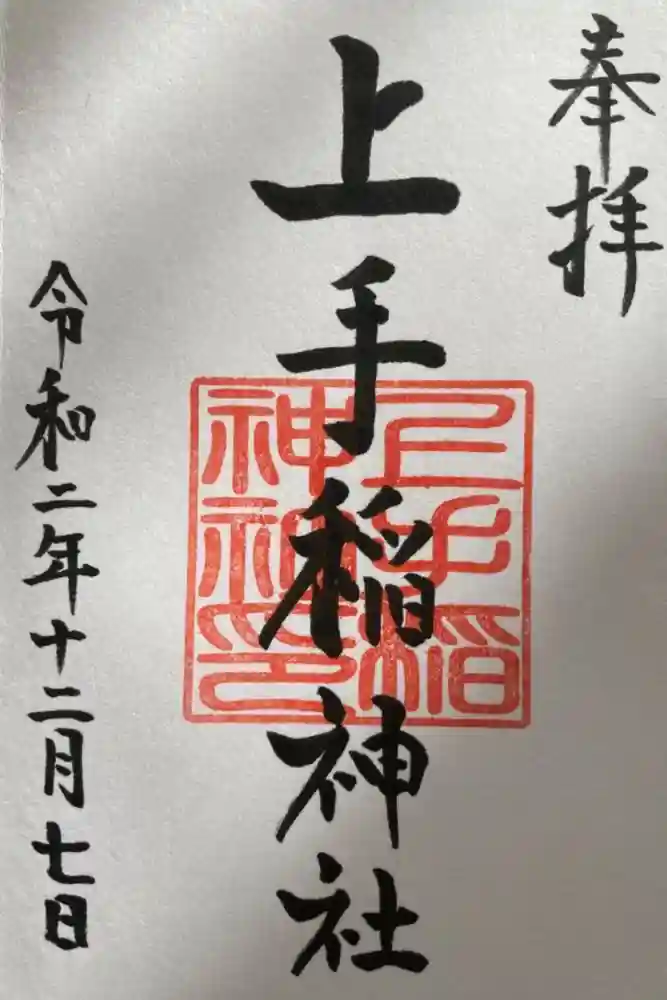 奉拝
上手稲神社
上手稲
神社印
令和二年十二月七日